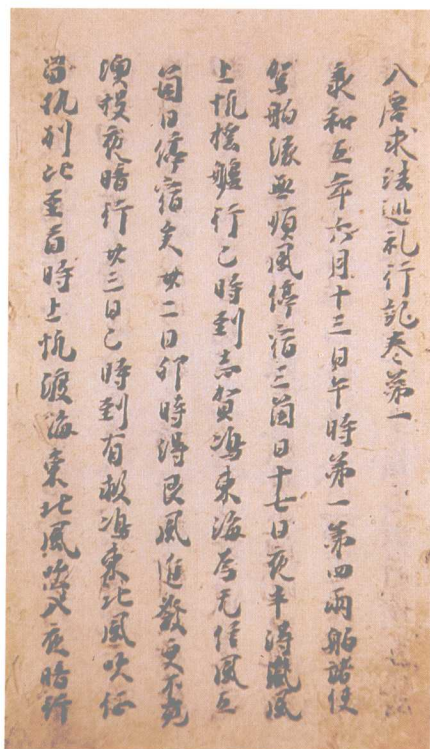 入唐求法巡礼行記卷第一
承和五年六月十三日午時第一第四兩舶諸使
駕舶緣無順風停宿三箇日十七日夜半得嵐風
上帆搖艫行巳時到志賀嶋東海為无信風五
箇日停宿矣廿二日卯時得艮風進發更不覓
澳投夜暗行廿三日巳時到有救嶋東北風吹征
留執別比至酉時上帆渡海東北風吹入夜暗行